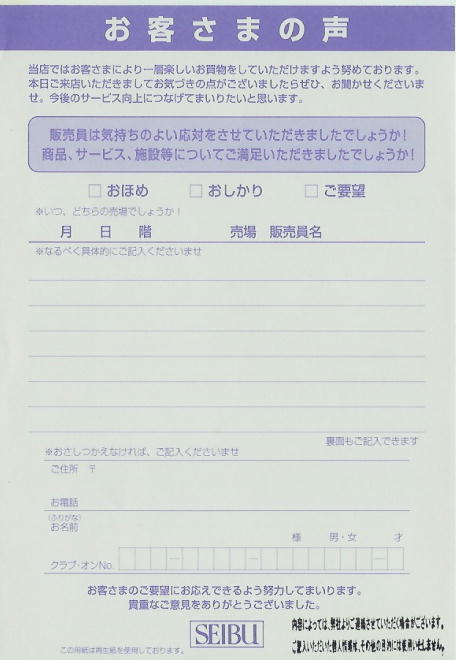 お客さまの声
当店ではお客さまにより一層楽しいお買物をしていただけますよう努めております。
本日ご来店いただきましてお気づきの点がございましたらぜひ、お聞かせくださいま
せ。今後のサービス向上につなげてまいりたいと思います。
販売員は気持ちのよい応対をさせていただきましたでしょうか!
商品、サービス、施設等についてご満足いただきましたでしょうか!
□おほめ □おしかり □ご要望
※いつ、どちらの売場でしょうか!
月 日 階 売場 販売員名
※なるべく具体的にご記入くださいませ
裏面もご記入できます
※おさしつかえなければ、ご記入くださいませ
ご住所 〒
お電話
(ふりがな)
お名前
様 男・女 才
クラブ・オンNo.
お客さまのご要望にお応えできるよう努力してまいります。
貴重なご意見をありがとうございました。
SEIBU
この用紙は再生紙を使用しております。
内容によっては、弊社よりご連絡させていただく場合がございます。
ご記入いただいた個人情報は、その他の目的には使用いたしません。